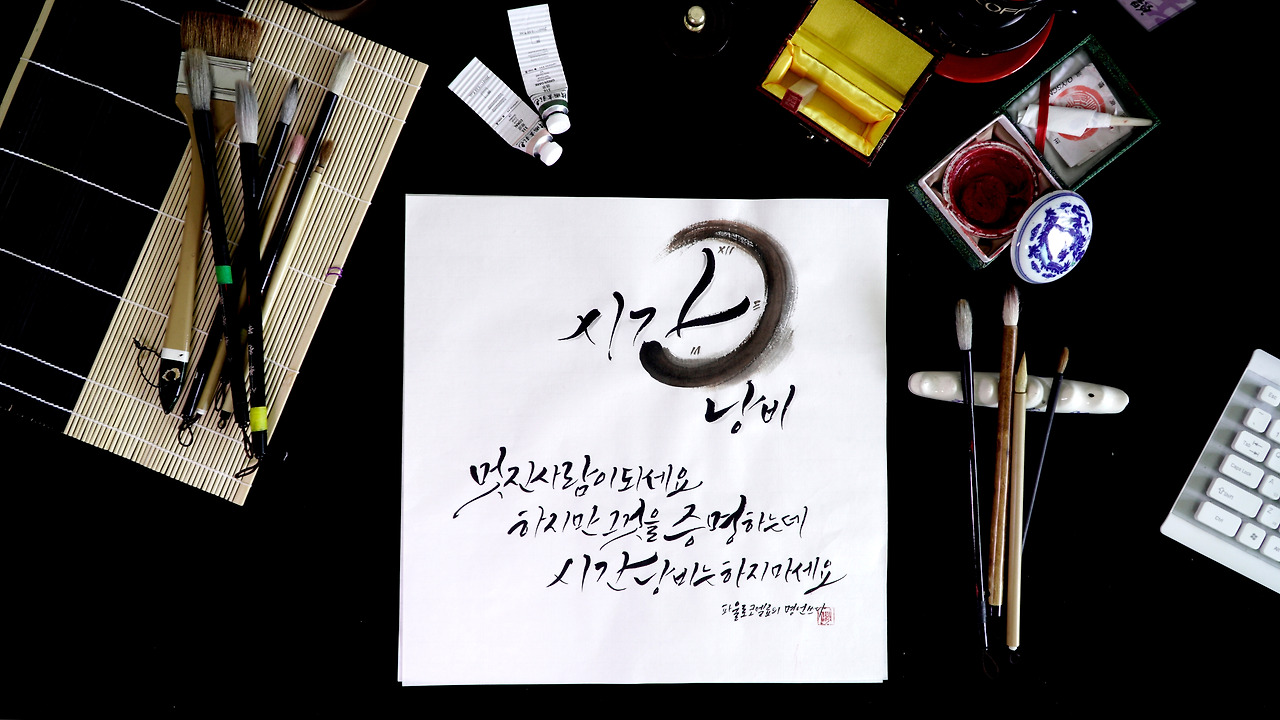 시간
XII
III
VI
낭비
멋진사람이되세요
하지만그것을증명하는데
시간낭비는하지마세요
파울로코엘료의 명언쓰다
OFF
Caps Lock
Shift
Ctrl